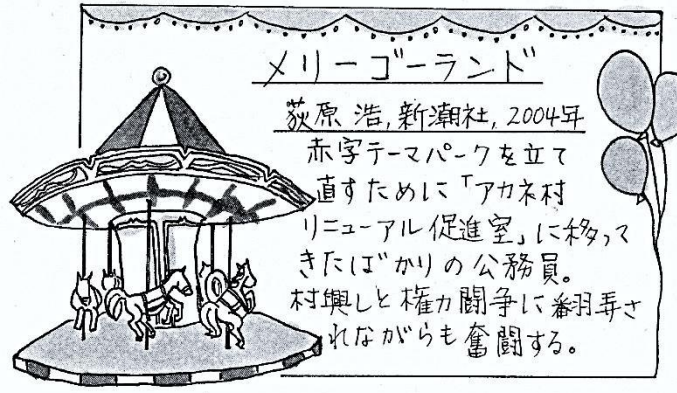 メリーゴーランド
荻原 浩, 新潮社, 2004年
赤字テーマパークを立て
直すために「アカネ村
リニューアル促進室」に移って
きたばかりの公務員。
村興しと権力闘争に翻弄さ
れながらも奮闘する。